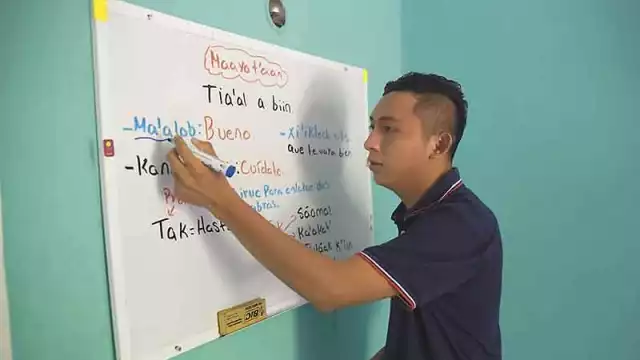 Maayat'aan
Tia'al a biin
-Ma'alob:Bueno
-Xi'iktech
que te vaya bien
-Kan :Cuídate
irve Para enlazar dos
bras.
Tak=Hasta
Sáamal
Ka'aka't
K'iin
BIC